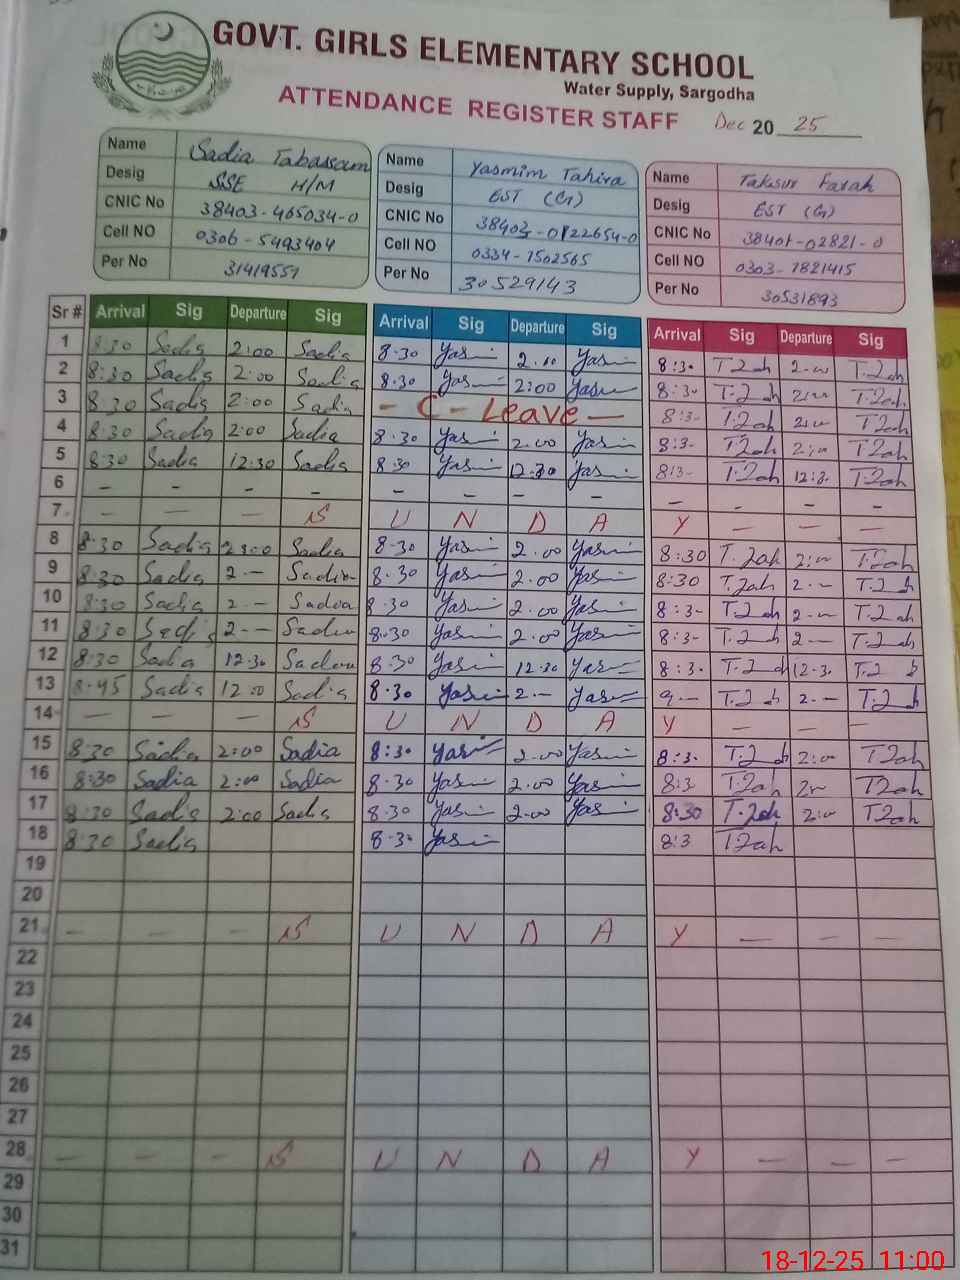 GOVT. GIRLS ELEMENTARY SCHOOL
Water Supply, Sargodha
ATTENDANCE REGISTER STAFF Dec 2025
Name Sadia Tabassam Name Yasmim Tahira Name Farah
Desig SSE H/M Desig EST (G) Desig EST (G)
CNIC No 38403-465034-0 CNIC No CNIC No 38401-02821-0
Cell NO 0306-5493404 Cell NO 0334-7502565 Cell NO 0303-7821415
Per No 31419551 Per No 30529143 Per No 30531893
Sr # Arrival Sig Departure Sig Arrival Sig Departure Sig Arrival Sig Departure Sig
1 8:30 Sadia 2:00 Sadia 8-30 Yasmin 2.00 Yasmin 8:30 2-00
2 8:30 Sadia 2:00 Sadia 8.30 Yasmin 2:00 Yasmin 8:30 2:00
3 8:30 Sadia 2:00 Sadia - C - Leave - 8:3- 2:00
4 8:30 Sadia 2:00 Sadia 8.30 Yasmin 2.00 Yasmin 8:3- 2:00
5 8:30 Sadia 12:30 Sadia 8:30 Yasmin 12:30 Yasmin 8:3- 12:3.
6 - - - - - - - - - - - -
7 - - - S U N D A Y - - -
8 8:30 Sadia 2:00 Sadia 8-30 Yasmin 2.00 Yasmin 8:30 2:00
9 8:30 Sadia 2.- Sadia 8.30 Yasmin 2.00 Yasmin 8:30 2.-
10 8:30 Sadia 2.- Sadia 8.30 Yasmin 2.00 Yasmin 8:3- 2.-
11 8:30 Sadia 2-- Sadia 8.30 Yasmin 2.00 Yasmin 8:3- 2-
12 8:30 Sadia 12.30 Sadia 8.30 Yasmin 12.30 Yasmin 8:3. 12.3.
13 8-45 Sadia 12:00 Sadia 8.30 Yasmin 2.- Yasmin 9- 2.-
14 - - - S U N D A Y - -
15 8:30 Sadia 2:00 Sadia 8:30 Yasmin 2.00 Yasmin 8:3. 2:00
16 8:30 Sadia 2:00 Sadia 8.30 Yasmin 2.00 Yasmin 8:3
17 8:30 Sadia 2:00 Sadia 8.30 Yasmin 2.00 Yasmin 8:30 2:00
18 8:30 Sadia 8.30 Yasmin 8:3
19
20
21 - - - S U N D A Y - - -
22
23
24
25
26
27
28 - - - S U N D A Y - - -
29
30
31
18-12-25 11:00